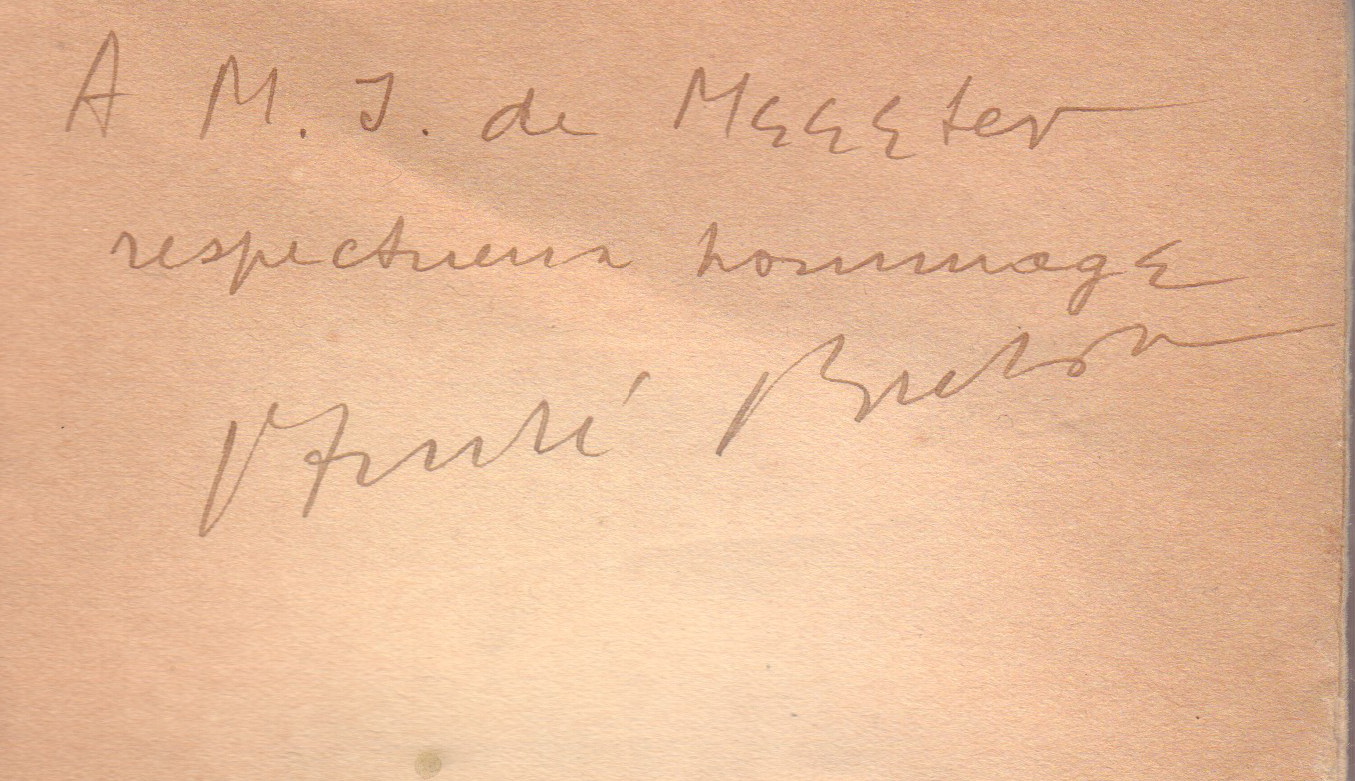 A M. J. de Meeeter
respectueux hommage
André Breton